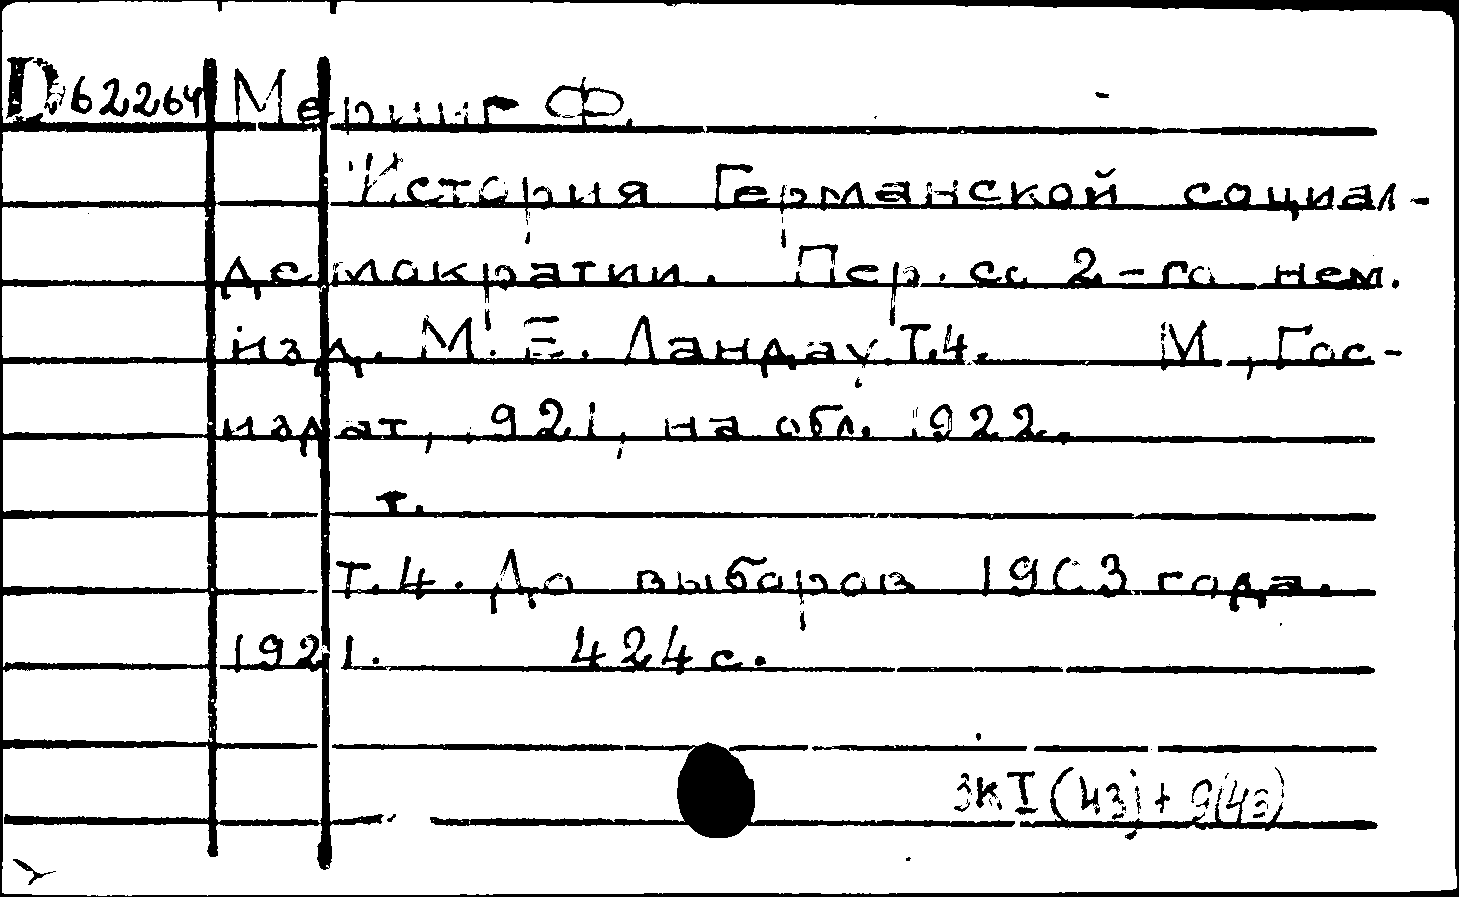 D62264 Меринг Ф.
История Германской социал-
демократии. Пер. со 2-го нем.
изд. М. Е. Ландау. Т.4. М., Гос-
издат, 1921, на обл. 1922.
т.
т.4. До выборов 1903 года.
1921. 424 с.
3КI(43) + 9(43)